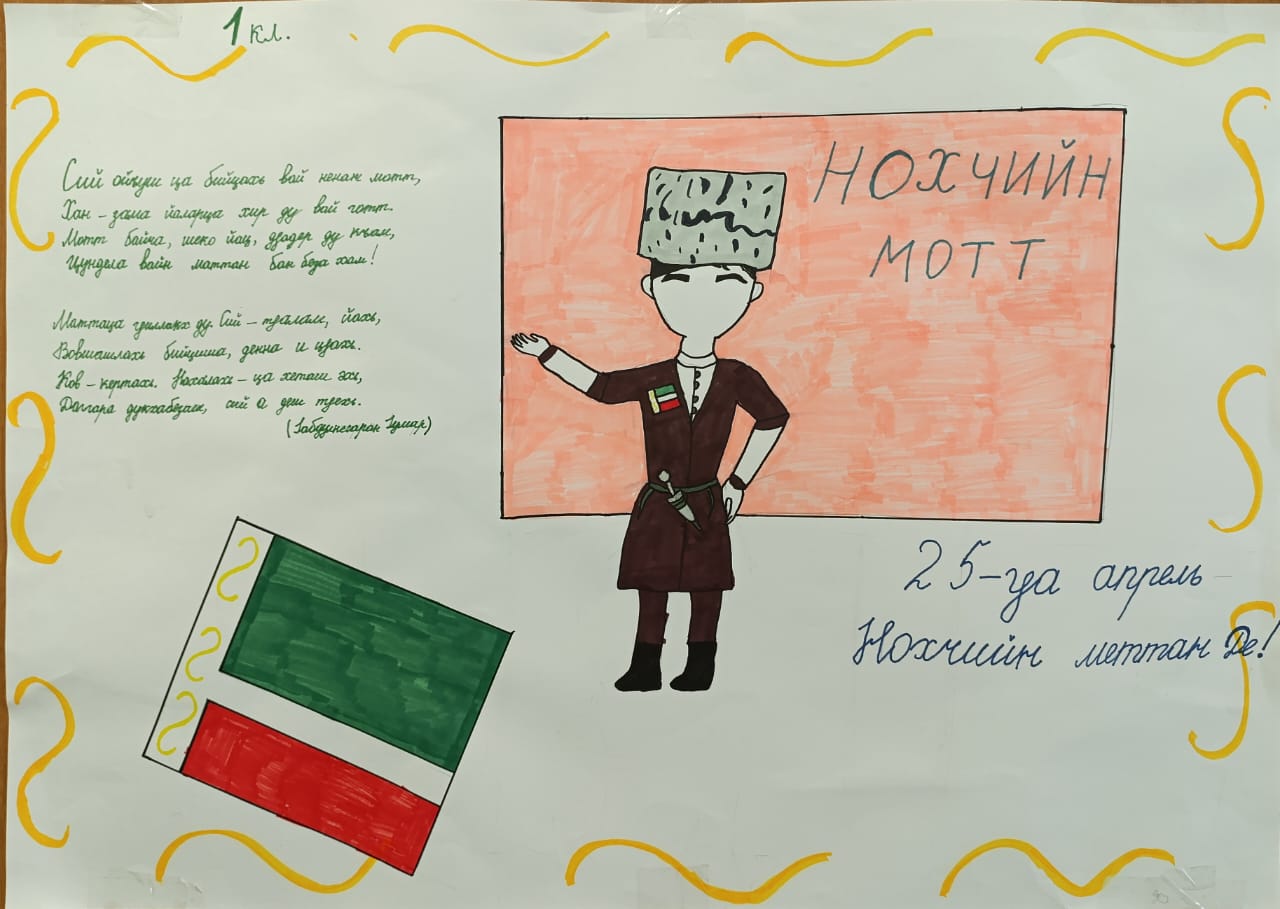 1 кл.
Сий ойъуш ца бийцахь вай ненан мотт,
Хан - зама йаларца хир ду вай готт.
Мотт байча, шеко йац, дӏадер ду къам,
Цундела вайн маттан бан беза хам!
Маттаца ду. Сий - , йахь,
Вовшашлахь бийцина, денна и цӏахь.
Ков - керташ. Нахалахь - ца хеташ эхь,
Даггара дукхабезаш, сий а деш тӏехь.
НОХЧИЙН
МОТТ
25-ӏа апрель -
Нохчийн меттан Де!